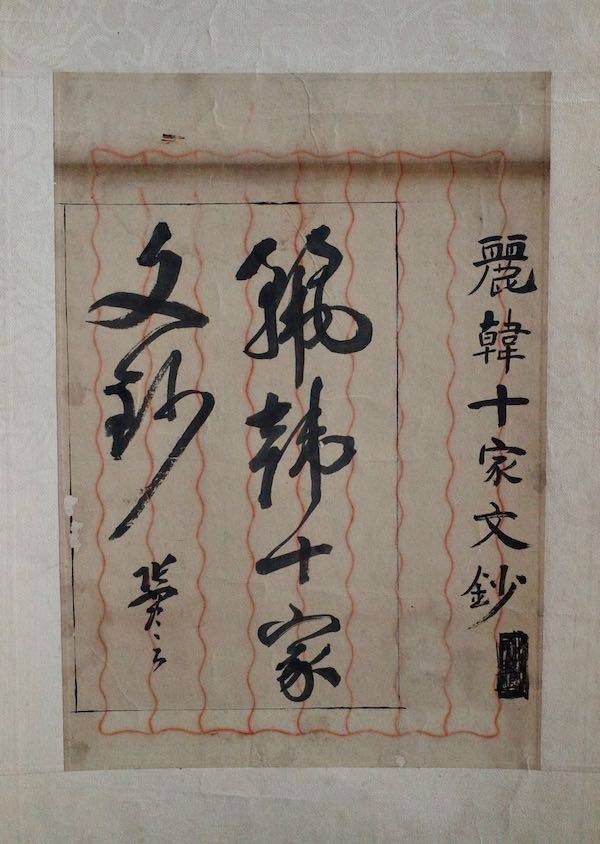 麗韓十家文鈔
麗韓十家
文鈔